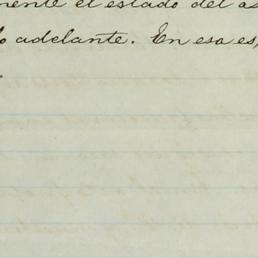 mente el estado del as
lo adelante. En esa es,